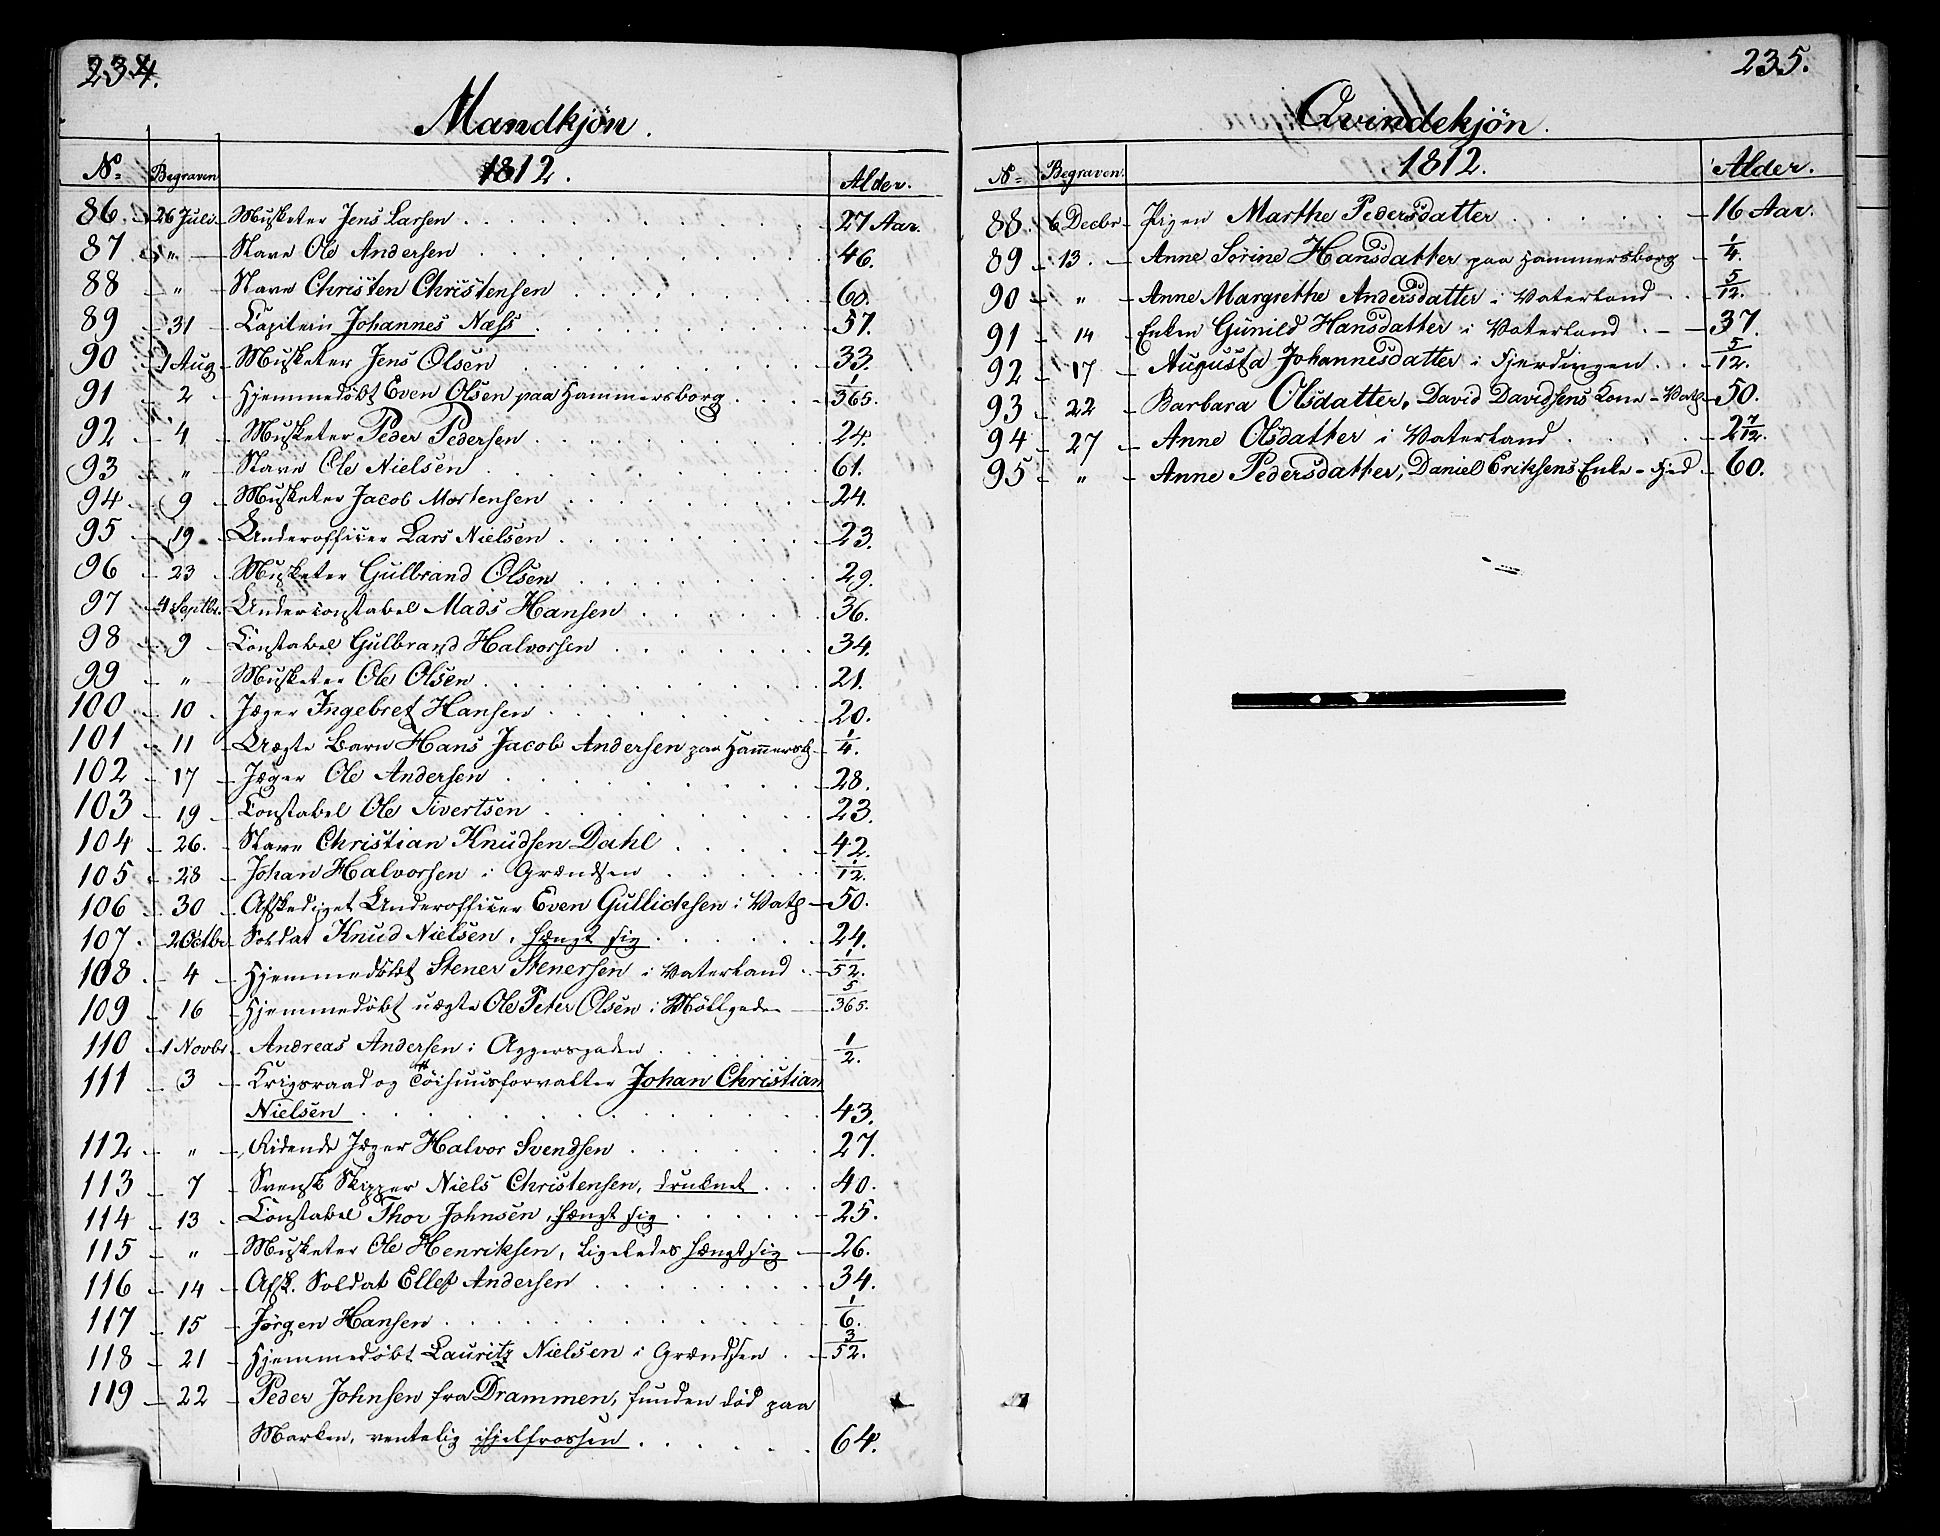 234.
Mandkjøn.
No Begraven 1812. Alder.
86. 26 Juli Musketer Jens Larsen 27 Aar.
87 " Slave Ole Andersen 46.
88 " Slave Christen Christensen 60.
89 31 Capitein Johannes Næss 57.
90 1 Aug Musketer Jens Olsen 33.
91 2 Hjemmedøbt Even Olsen paa Hammersborg 1/365.
92 4 Musketer Peder Pedersen 24.
93 " Slave Ole Nielsen 61.
94 9 Musketer Jacob Mortensen 24.
95 19 Underofficer Lars Nielsen 23.
96 23 Musketer Gulbrand Olsen 29.
97 4 Septbr. Underconstabel Mads Hansen 36.
98 9 Constabel Gulbrand Halvorsen 34.
99 " Musketer Ole Olsen 21.
100 10 Jæger Ingebret Hansen 20.
101 11 Uægte Barn Hans Jacob Andersen paa Hammersb 1/4.
102 17 Jæger Ole Andersen 28.
103 19 Constabel Ole Sivertsen 23.
104 26. Slave Christian Knudsen Dahl 42.
105 28 Johan Halvorsen i Grændsen 1/12.
106 30 Afskediget Underofficer Even Gullichsen i Vatl 50.
107 2 Octbr Soldat Knud Nielsen, hængt sig 24.
108 4 Hjemmedøbt Stener Stenersen i Vaterland 1/52.
109 16 Hjemmedøbt uægte Ole Peter Olsen i Möllgade 5/365.
110 1 Novbr Andreas Andersen i Aggersgaden 1/2.
111 3 Krigsraad og Töihuusforvalter Johan Christian
Nielsen 43.
112 " Ridende Jæger Halvor Svendsen 27.
113 7 Svensk Skipper Niels Christensen, druknet 40.
114 13 Constabel Thor Johnsen, hængt sig 25.
115 " Musketer Ole Henriksen, ligeledes hængt sig 26.
116 14 Afsk. Soldat Ellef Andersen 34.
117 15 Jørgen Hansen 1/6.
118 21 Hjemmedøbt Lauritz Nielsen i Grændsen 3/52.
119 22 Peder Johnsen fra Drammen, funden død paa
Marken, ventelig ihjelfrossen 64.
235.
Qvindekjön.
No Begraven. 1812. Alder.
88. 6 Decbr Pigen Marthe Pedersdatter 16 Aar.
89 13. Anne Sørine Hansdatter paa Hammersborg 1/4.
90 " Anne Margrethe Andersdatter i Vaterland 5/12.
91 14 Enken Gunild Hansdatter i Vaterland 37.
92 17 Augusta Johannesdatter i Fjerdingen 5/12.
93 22 Barbara Olsdatter, David Davidsens Kone - Vatl 50.
94 27 Anne Olsdatter i Vaterland 2 7/12.
95 " Anne Pedersdatter, Daniel Eriksens Enke - Fjed 60.